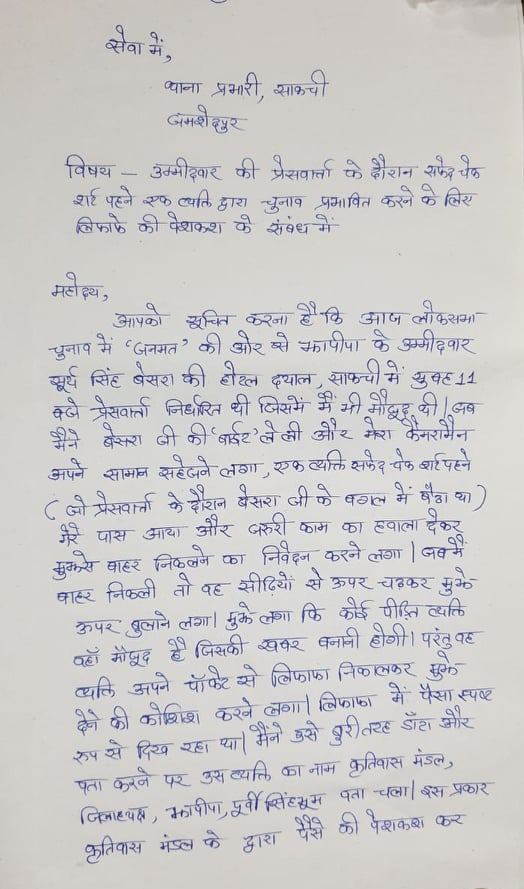 सेवा में,
थाना प्रभारी, साकची
जमशेदपुर
विषय – उम्मीदवार की प्रेसवार्ता के दौरान सफेद चेक
शर्ट पहने एक व्यक्ति द्वारा चुनाव प्रभावित करने के लिए
लिफाफे की पेशकश के संबंध में
महोदय,
आपको सूचित करना है कि आज लोकसभा
चुनाव में 'जनमत' की ओर से झापीपा के उम्मीदवार
सूर्य सिंह बेसरा की होटल दयाल, साकची में सुबह 11
बजे प्रेसवार्ता निर्धारित थी जिसमें मैं भी मौजूद थी। जब
मैंने बेसरा जी की 'बाईट' ले ली और मेरा कैमरामैन
अपने सामान सहेजने लगा, एक व्यक्ति सफेद चेक शर्ट पहने
(जो प्रेसवार्ता के दौरान बेसरा जी के बगल में बैठा था)
मेरे पास आया और जरुरी काम का हवाला देकर
मुझसे बाहर निकलने का निवेदन करने लगा। जब मैं
बाहर निकली तो वह सीढ़ियों से ऊपर चढ़कर मुझे
ऊपर बुलाने लगा। मुझे लगा कि कोई पीड़ित व्यक्ति
वहाँ मौजूद है जिसकी खबर बनानी होगी। परंतु वह
व्यक्ति अपने पॉकेट से लिफाफा निकालकर मुझे
देने की कोशिश करने लगा। लिफाफा में पैसा स्पष्ट
रुप से दिख रहा था। मैंने उसे बुरी तरह डाँटा और
पता करने पर उस व्यक्ति का नाम कृतिवास मंडल,
जिलाध्यक्ष, झापीपा, पूर्वी सिंहभूम पता चला। इस प्रकार
कृतिवास मंडल के द्वारा पैसे की पेशकश कर